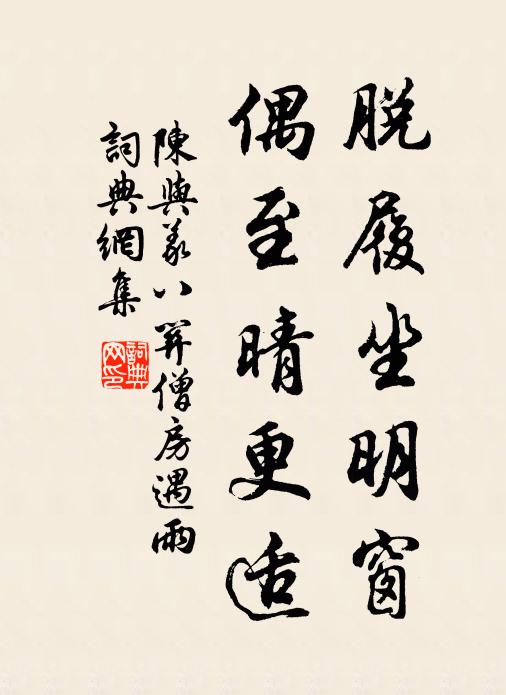 脱履坐明窗
偶至晴更适
陳與義八關僧房遇雨
詞典網集
詞典网印